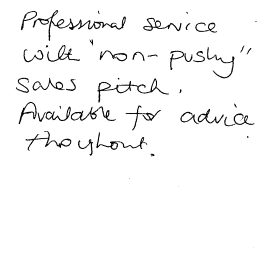 Professional service
with "non-pushy"
sales pitch.
Available for advice
throughout.